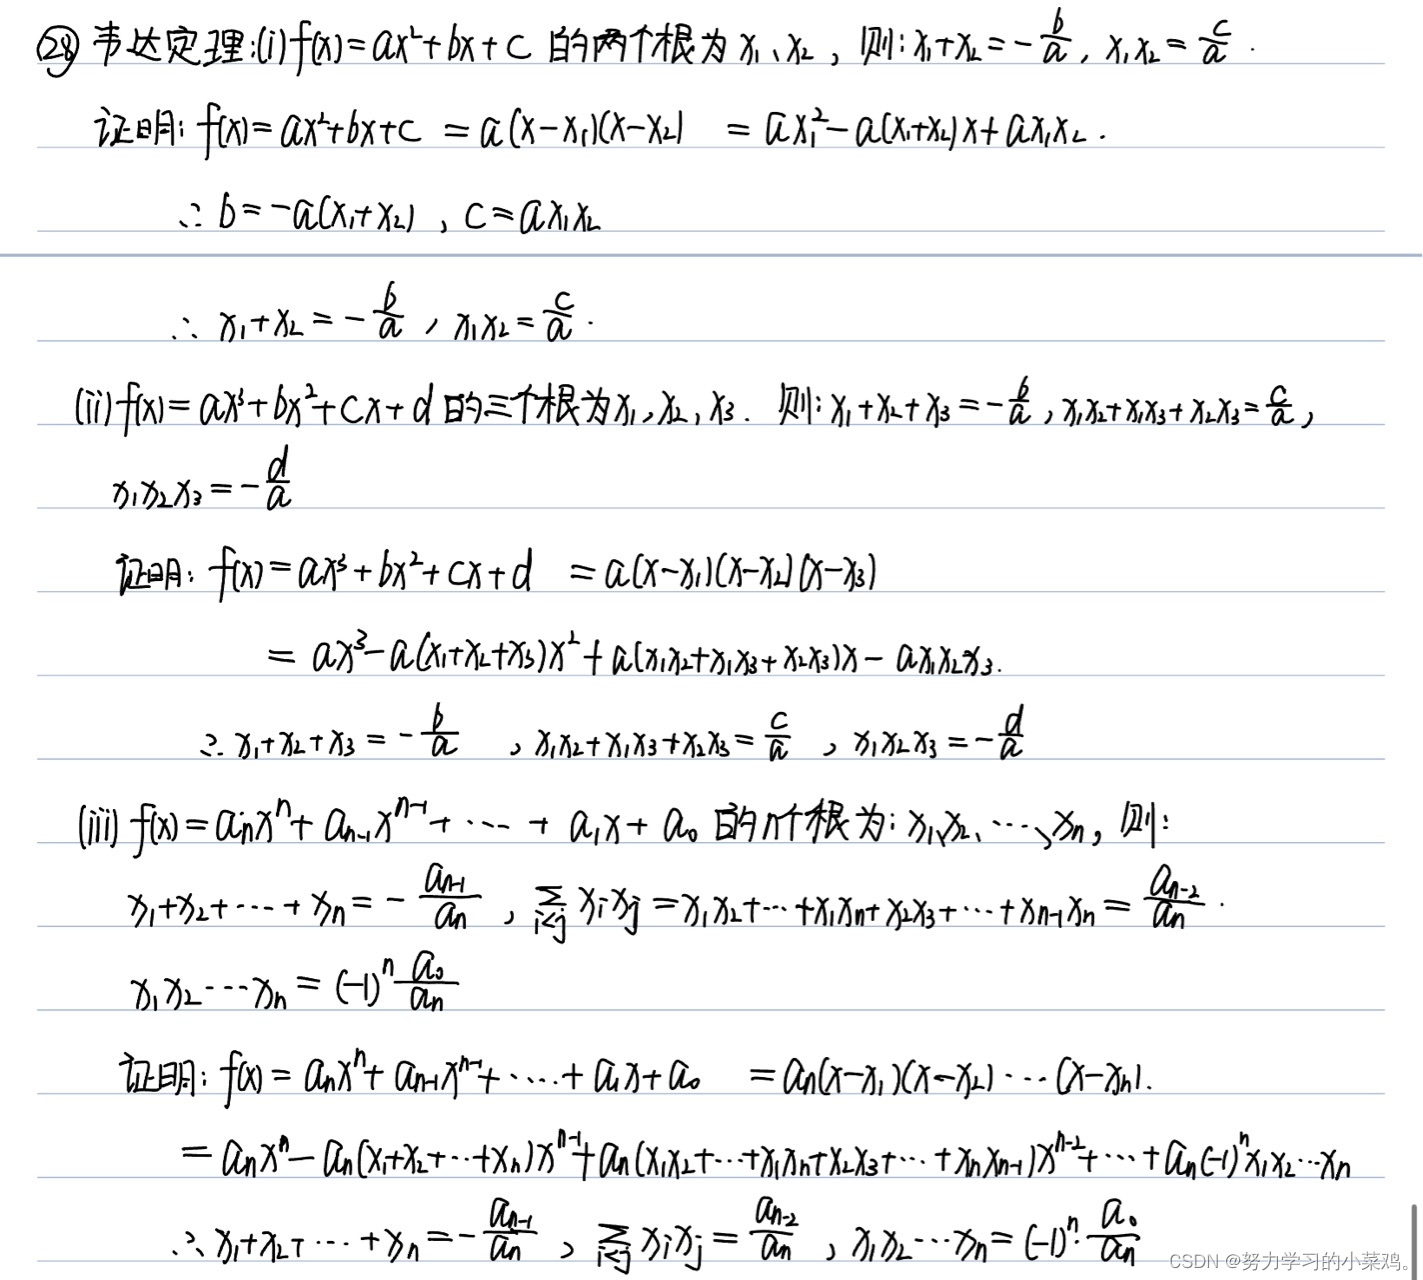 ㉘ 韦达定理:(i) f(x)=ax²+bx+c 的两个根为 x₁、x₂，则: x₁+x₂=-b/a, x₁x₂=c/a.
证明: f(x)=ax²+bx+c =a(x-x₁)(x-x₂) =ax₁²-a(x₁+x₂)x+ax₁x₂.
∴ b=-a(x₁+x₂), c=ax₁x₂
∴ x₁+x₂=-b/a, x₁x₂=c/a.
(ii) f(x)=ax³+bx²+cx+d 的三个根为x₁, x₂, x₃. 则: x₁+x₂+x₃=-b/a, x₁x₂+x₁x₃+x₂x₃=c/a,
x₁x₂x₃=-d/a
证明: f(x)=ax³+bx²+cx+d =a(x-x₁)(x-x₂)(x-x₃)
=ax³-a(x₁+x₂+x₃)x²+a(x₁x₂+x₁x₃+x₂x₃)x-ax₁x₂x₃.
∴ x₁+x₂+x₃=-b/a, x₁x₂+x₁x₃+x₂x₃=c/a, x₁x₂x₃=-d/a
(iii) f(x)=aₙxⁿ+aₙ₋₁xⁿ⁻¹+⋯+a₁x+a₀ 的n个根为: x₁、x₂、⋯、xₙ, 则:
x₁+x₂+⋯+xₙ=-aₙ₋₁/aₙ, ∑_{i<j} xᵢxⱼ=x₁x₂+⋯+x₁xₙ+x₂x₃+⋯+xₙ₋₁xₙ=aₙ₋₂/aₙ.
x₁x₂⋯xₙ=(-1)ⁿa₀/aₙ
证明: f(x)=aₙxⁿ+aₙ₋₁xⁿ⁻¹+⋯+a₁x+a₀ =aₙ(x-x₁)(x-x₂)⋯(x-xₙ).
=aₙxⁿ-aₙ(x₁+x₂+⋯+xₙ)xⁿ⁻¹+aₙ(x₁x₂+⋯+x₁xₙ+x₂x₃+⋯+xₙxₙ₋₁)xⁿ⁻²+⋯+aₙ(-1)ⁿx₁x₂⋯xₙ
∴ x₁+x₂+⋯+xₙ=-aₙ₋₁/aₙ, ∑_{i<j} xᵢxⱼ=aₙ₋₂/aₙ, x₁x₂⋯xₙ=(-1)ⁿ·a₀/aₙ
CSDN @努力学习的小菜鸡。